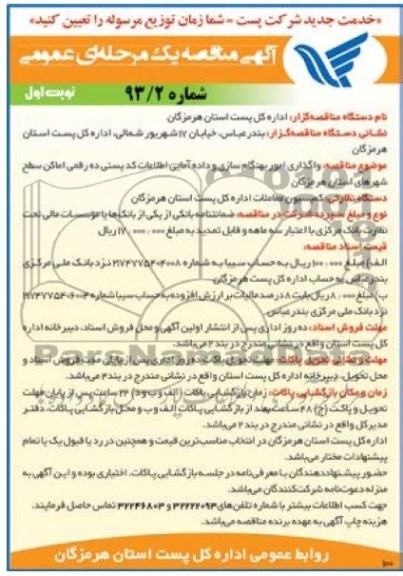 «خدمت جدید شرکت پست = شما زمان توزیع مرسوله را تعیین کنید»
آگهی مناقصه یک مرحله‌ای عمومی
شماره ۹۳/۲
نوبت اول
نام دستگاه مناقصه‌گزار: اداره کل پست استان هرمزگان
نشانی دستگاه مناقصه‌گزار: بندرعباس، خیابان ۱۷ شهریور شمالی، اداره کل پست استان
هرمزگان
موضوع مناقصه: واگذاری امور بهنگام سازی و داده آمایی اطلاعات کد پستی ده رقمی اماکن سطح
شهرهای استان هرمزگان
دستگاه نظارتی: کمیسیون معاملات اداره کل پست استان هرمزگان
نوع و مبلغ سپرده شرکت در مناقصه: ضمانتنامه بانکی از یکی از بانک‌ها یا موسسات مالی تحت
نظارت بانک مرکزی با اعتبار سه ماهه و قابل تمدید به مبلغ ریال
قیمت اسناد مناقصه:
الف) مبلغ ریال به حساب سیبا به شماره ۲۱۷۴۷۷۵۴۰۴۰۰۸ نزد بانک ملی مرکزی
بندرعباس به حساب اداره کل پست هرمزگان
ب) مبلغ ریال بابت ۸ درصد مالیات بر ارزش افزوده به حساب سیبا شماره ۲۱۷۴۷۷۵۴۰۶۰۰۴
نزد بانک ملی مرکزی بندرعباس.
مهلت فروش اسناد: ده روز اداری پس از انتشار اولین آگهی و محل فروش اسناد، دبیرخانه اداره
کل پست استان واقع در نشانی مندرج در بند ۲ می‌باشد.
مهلت و نشانی تحویل پاکات: مهلت تحویل پاکات ده روز اداری پس از پایان مدت فروش اسناد و
محل تحویل، دبیرخانه اداره کل پست استان واقع در نشانی مندرج در بند ۲ می‌باشد.
زمان و مکان بازگشایی پاکات: زمان بازگشایی پاکات (الف و ب و د) ۲۴ ساعت پس از پایان مهلت
تحویل و پاکت (ج) ۴۸ ساعت بعد از بازگشایی پاکات الف و ب و محل بازگشایی پاکات، دفتر
مدیرکل واقع در نشانی مندرج در بند ۲ می‌باشد.
اداره کل پست استان هرمزگان در انتخاب مناسب‌ترین قیمت و همچنین در رد یا قبول یک یا تمام
پیشنهادات مختار می‌باشد.
حضور پیشنهاددهندگان با معرفی‌نامه در جلسه بازگشایی پاکات، اختیاری بوده و این آگهی به
منزله دعوت‌نامه شرکت‌کنندگان می‌باشد.
جهت کسب اطلاعات بیشتر با شماره تلفن‌های ۳۲۲۲۲۰۹۳ و ۳۲۲۴۶۸۰۳ تماس حاصل فرمایند.
هزینه چاپ آگهی به عهده برنده مناقصه می‌باشد.
روابط عمومی اداره کل پست استان هرمزگان